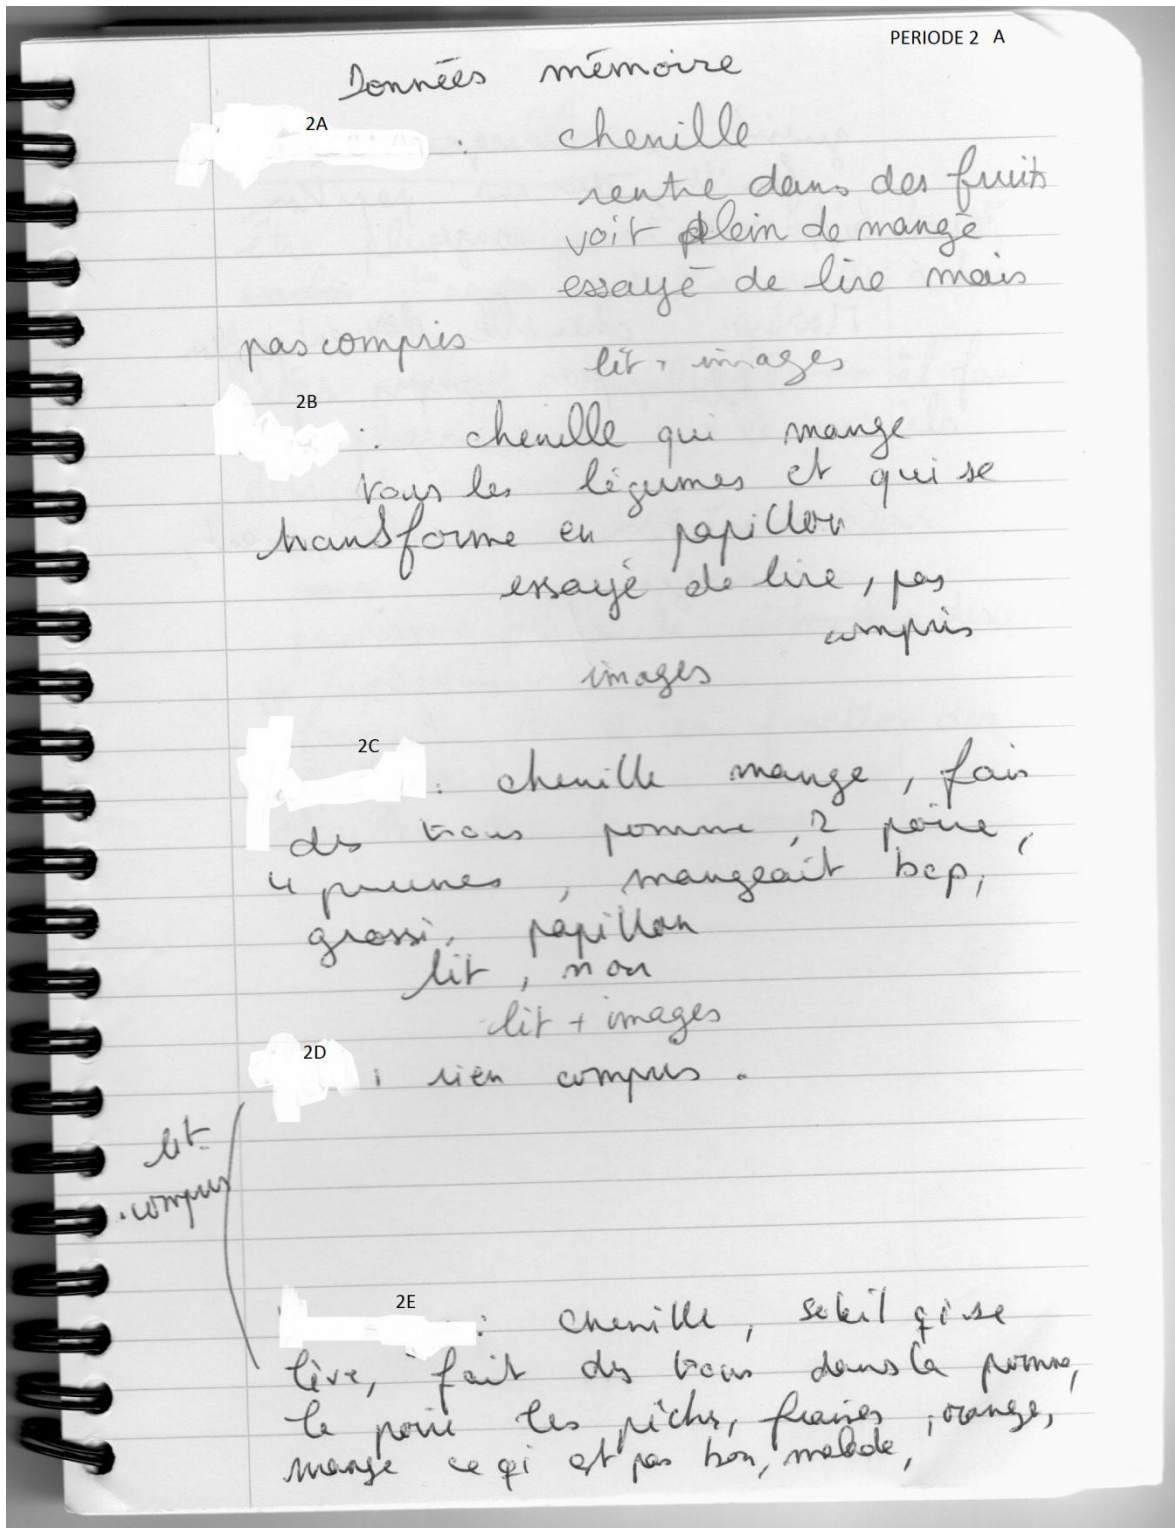 PERIODE 2 A
Données mémoire
2A : chenille
rentre dans des fruits
voit plein de mangé
essayé de lire mais
pas compris
lit + images
2B : chenille qui mange
tous les légumes et qui se
transforme en papillon
essayé de lire, pas
compris
images
2C : chenille mange, fais
des trous pomme, 2 poire,
4 prunes, mangeait bcp,
grossi, papillon
lit, non
lit + images
2D : rien compris.
lit
compris
2E : chenille, soleil qi se
lève, fait des trous dans la pomme,
le poire les pêches, fraises, orange,
mange ce qi est pas bon, malade,